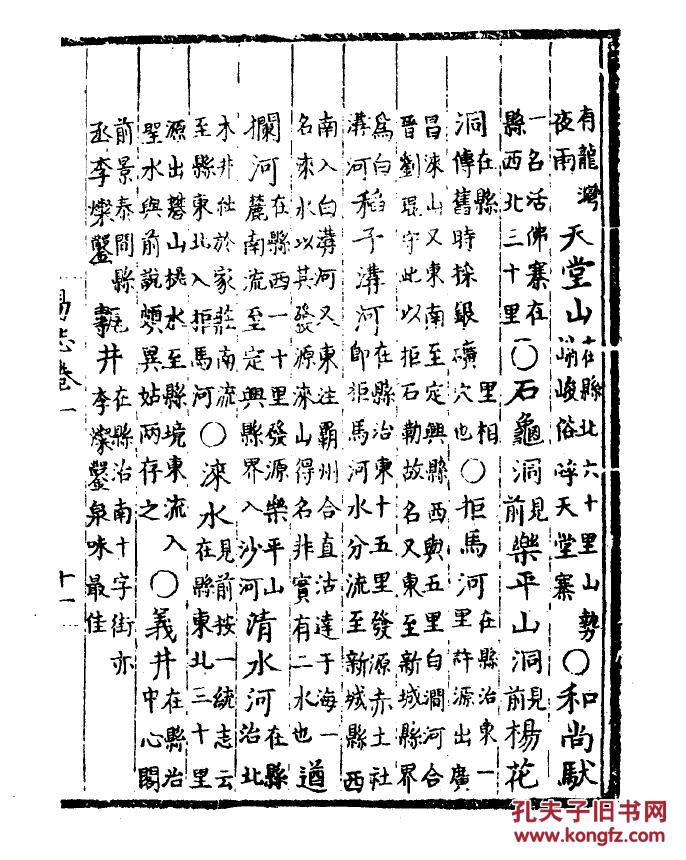 有龍灣
夜雨
天堂山
在縣北六十里山勢
峻俗呼天堂寨
○和尚馱
一名活佛寨在
縣西北三十里
○石龜洞
見
前
樂平山洞
見
前
楊花
洞
在縣 里相
傳舊時採銀礦穴也
○拒馬河
在縣治東一
里許源出廣
昌淶山又東南至定興縣西與五里白澗河合
晉劉琨守此以拒石勒故名又東至新城縣界
爲白
溝河
稻子溝河
在縣治東十五里發源赤土社
即拒馬河水分流至新城縣西
南入白溝河又東注霸州合直沽達于海一
名淶水以其發源淶山得名非實有二水也
遒
欄河
在縣西一十里發源樂平山
麓南流至定興縣界入沙河
清水河
在縣
治北
木井社於家莊南流
至縣東北入拒馬河
○淶水
見前按一統志云
在縣東北三十里
源出礬山桃水至縣境東流入
聖水與前說頗異姑兩存之
○義井
在縣治
中心閣
前景泰間縣
丞李燦鑿
井
在縣治南十字街亦
李燦鑿泉味最佳
易志卷一
十一
孔夫子旧书网
www.kongfz.com